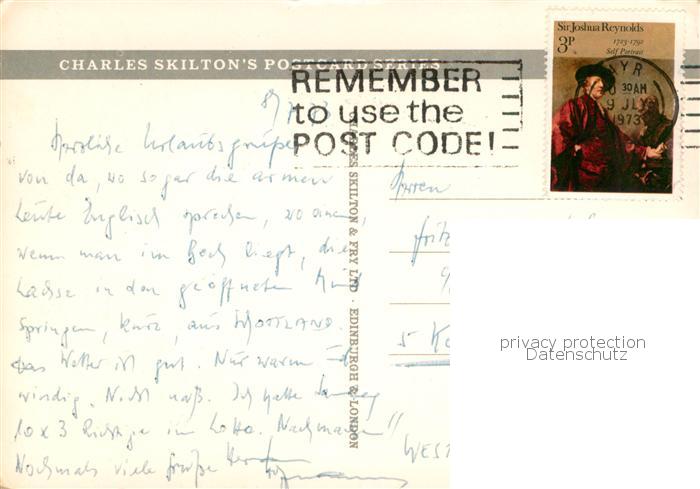 CHARLES SKILTON'S POSTCARD SERIES
Sir Joshua Reynolds
3P
1723-1792
Self Portrait
AYR
30 AM
9 JLY
1973
REMEMBER
to use the
POST CODE!
Herzliche Urlaubsgrüße
von da, wo sogar die armen
Leute Englisch sprechen, wo einem,
wenn man im Boch liegt, die
Lachse in den geöffneten Mund
springen, kurz, aus SCHOTTLAND.
Das Wetter ist gut. Nur warm
windig. Nicht naß. Ich hatte
10 x 3 Richtige im Lotto. Nachmachen!!
Nochmals viele Grüße
CHARLES SKILTON & FRY LTD · EDINBURGH & LONDON
Herren
Fritz
5 Kö
WEST
privacy protection
Datenschutz